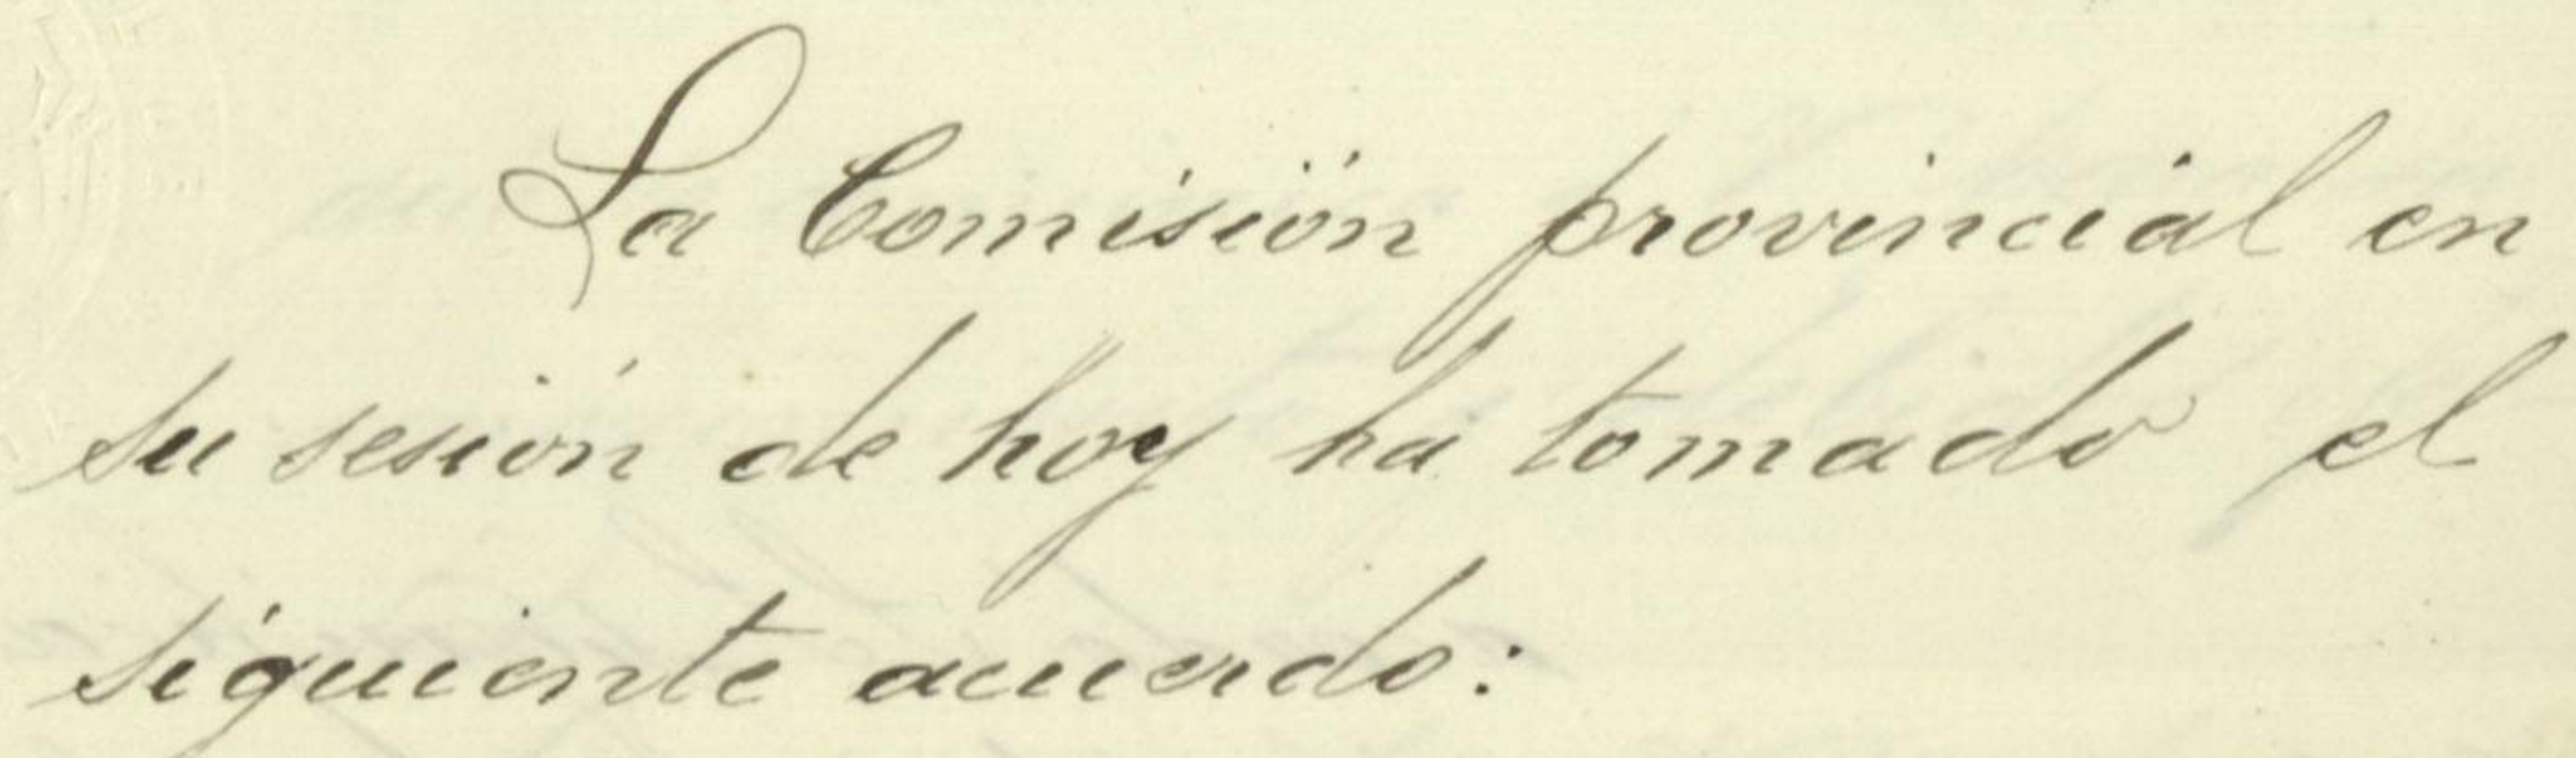 La Comisión provincial en
su sesión de hoy ha tomado el
siguiente acuerdo: